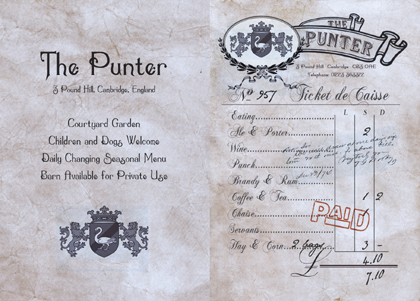 The Punter
3 Pound Hill, Cambridge, England
Courtyard Garden
Children and Dogs Welcome
Daily Changing Seasonal Menu
Barn Available for Private Use
THE
PUNTER
3 Pound Hill, Cambridge CB3 0NE
Telephone
No 957 Ticket de Caisse
L S D
Eating
Ale & Porter 2
Wine
Punch
Brandy & Rum
Coffee & Tea 1 2
Chaise
PAID
Servants
Hay & Corn 2 bags 3 -
£ 4.10
7.10